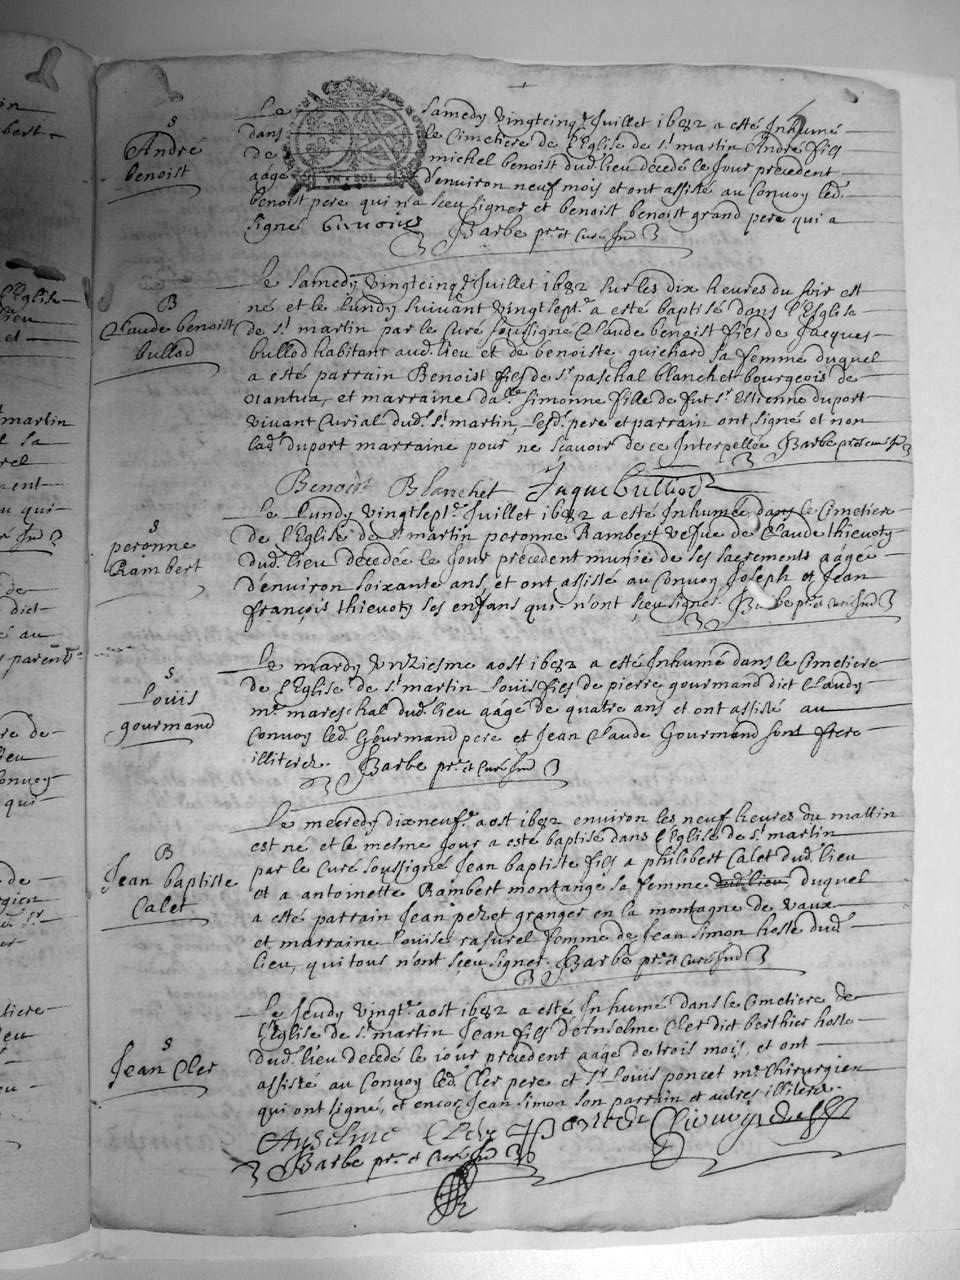 Le samedy vingtcinqe Juillet 1682 a esté Inhumé
dans le Cimetiere de l'Eglise de st martin André fils
de michel benoist dud lieu decedé le Jour precedent
aagé d'environ neuf mois et ont assisté au Convoy led.
VN SOL
benoist pere qui n'a sceu signer et benoist benoist grand pere qui a
signé
Barbe ptre et Curé sud
S
André
benoist
Le samedy vingtcinqe Juillet 1682 sur les dix heures du soir est
né et le Lundy suivant vingtsepte a esté baptisé dans l'Esglise
de st martin par le Curé soussigné Claude benoist fils de Jacques
bullod habitant aud. lieu et de benoiste guichard sa femme duquel
a esté parrain Benoist fils de sr paschal blanchet bourgeois de
nantua, et marraine dalle simonne fille de fut sr Estienne duport
vivant Curial dud. st martin, lesd. pere et parrain ont signé et non
lad. duport marraine pour ne scavoir de ce Interpellée Barbe ptre et curé sd
B
Claude benoist
bullod
Benoist Blanchet
Le Lundy vingtsepte Juillet 1682 a esté Inhumée dans le Cimetiere
de l'Eglise de st martin peronne Rambert vefue de Claude thievoty
dud. lieu decedée le Jour precedent munie de ses sacrements aagée
d'environ soixante ans, et ont assisté au Convoy Joseph et Jean
françois thievoty ses enfans qui n'ont sceu signer. Barbe ptre et Curé sud
S
peronne
Rambert
Le mardy unziesme aost 1682 a esté Inhumé dans le Cimetiere
de l'Eglise de st martin Louïs fils de pierre gourmand dict Claudy
mre mareschal dud. lieu aagé de quatre ans et ont assisté au
Convoy led. Gourmand pere et Jean Claude Gourmand sont frere
illiterez. Barbe ptre et Curé sud
S
Louïs
gourmand
Le mecredy dixneufe aost 1682 environ les neuf heures du mattin
est né et le mesme Jour a esté baptisé dans l'Eglise de st martin
par le Curé soussigné Jean baptiste fils a philibert Calet dud. lieu
et a antoinette Rambert montange sa femme dud. lieu duquel
a esté parrain Jean peret granger en la montagne de vaux
et marraine Louise rasurel femme de Jean simon hoste dud.
lieu, qui tous n'ont sceu signer. Barbe ptre et Curé sud
B
Jean baptiste
Calet
Le Jeudy vingte aost 1682 a esté Inhumé dans le Cimetiere de
l'Eglise de st martin Jean fils d'Anselme Cler dict berthier hoste
dud. lieu decedé le jour precedent aagé de trois mois, et ont
assisté au Convoy led. Cler pere et sr Louis poncet mre Chirurgien
qui ont signé, et encor Jean simon son parrain et autres illiterez.
S
Jean Cler
Anselme Cler
Barbe ptre et Curé sud